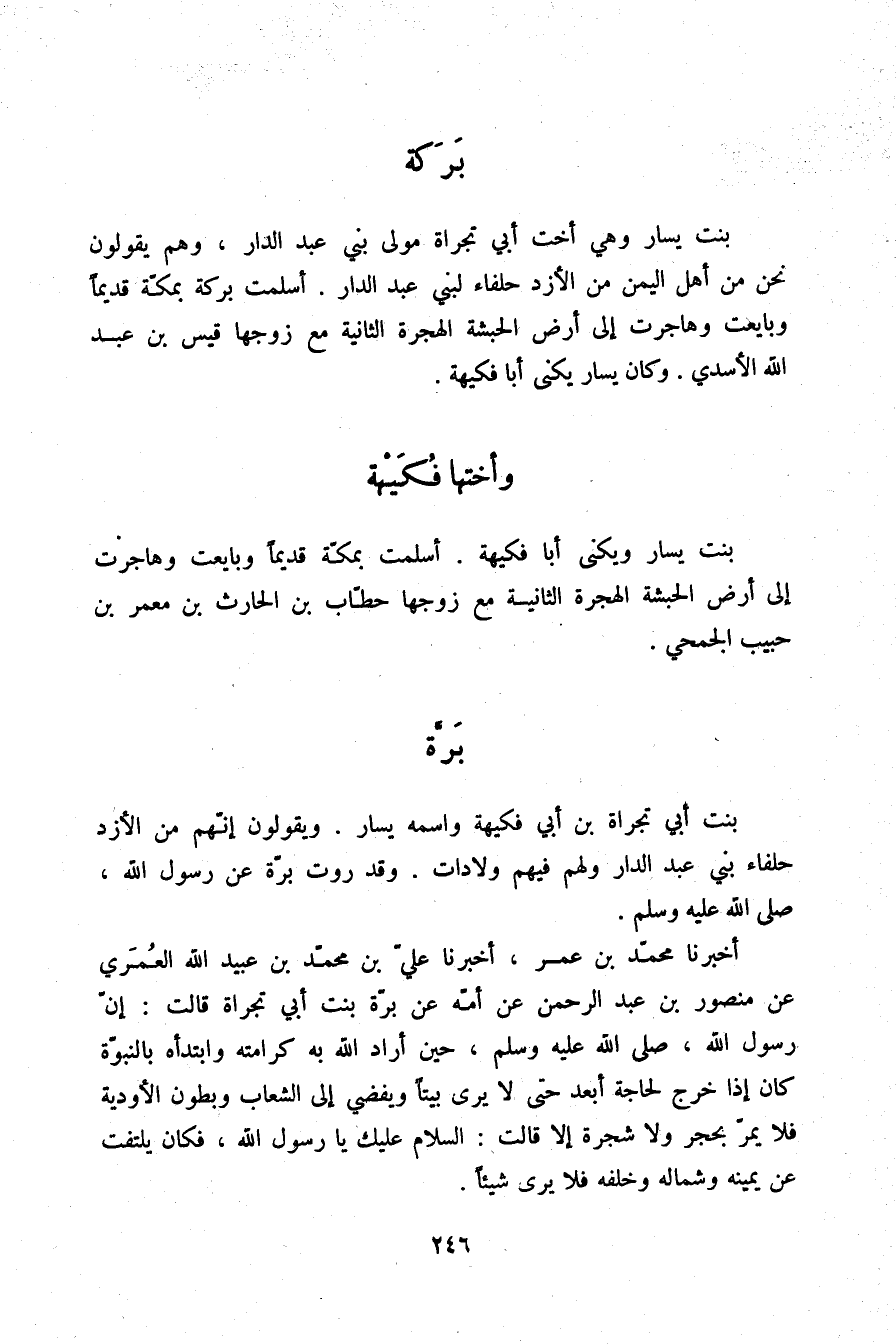 بَرَكة
بنت يسار وهي أخت أبي تجراة مولى بني عبد الدار ، وهم يقولون
نحن من أهل اليمن من الأزد حلفاء لبني عبد الدار . أسلمت بركة بمكّة قديماً
وبايعت وهاجرت إلى أرض الحبشة الهجرة الثانية مع زوجها قيس بن عبــد
الله الأسدي . وكان يسار يكنى أبا فكيهة .
وأختها فُكَيْهة
بنت يسار ويكنى أبا فكيهة . أسلمت بمكّة قديماً وبايعت وهاجرت
إلى أرض الحبشة الهجرة الثانيــة مع زوجها حطّاب بن الحارث بن معمر بن
حبيب الجمحي .
بَرّة
بنت أبي تجراة بن أبي فكيهة واسمه يسار . ويقولون إنّهم من الأزد
حلفاء بني عبد الدار ولهم فيهم ولادات . وقد روت برّة عن رسول الله ،
صلى الله عليه وسلم .
أخبرنا محمّد بن عمــر ، أخبرنا عليّ بن محمّد بن عبيد الله العُمَري
عن منصور بن عبد الرحمن عن أمّه عن برّة بنت أبي تجراة قالت : إنّ
رسول الله ، صلى الله عليه وسلم ، حين أراد الله به كرامته وابتدأه بالنبوّة
كان إذا خرج لحاجة أبعد حتى لا يرى بيتاً ويفضي إلى الشعاب وبطون الأودية
فلا يمرّ بحجر ولا شجرة إلا قالت : السلام عليك يا رسول الله ، فكان يلتفت
عن يمينه وشماله وخلفه فلا يرى شيئاً .
٢٤٦